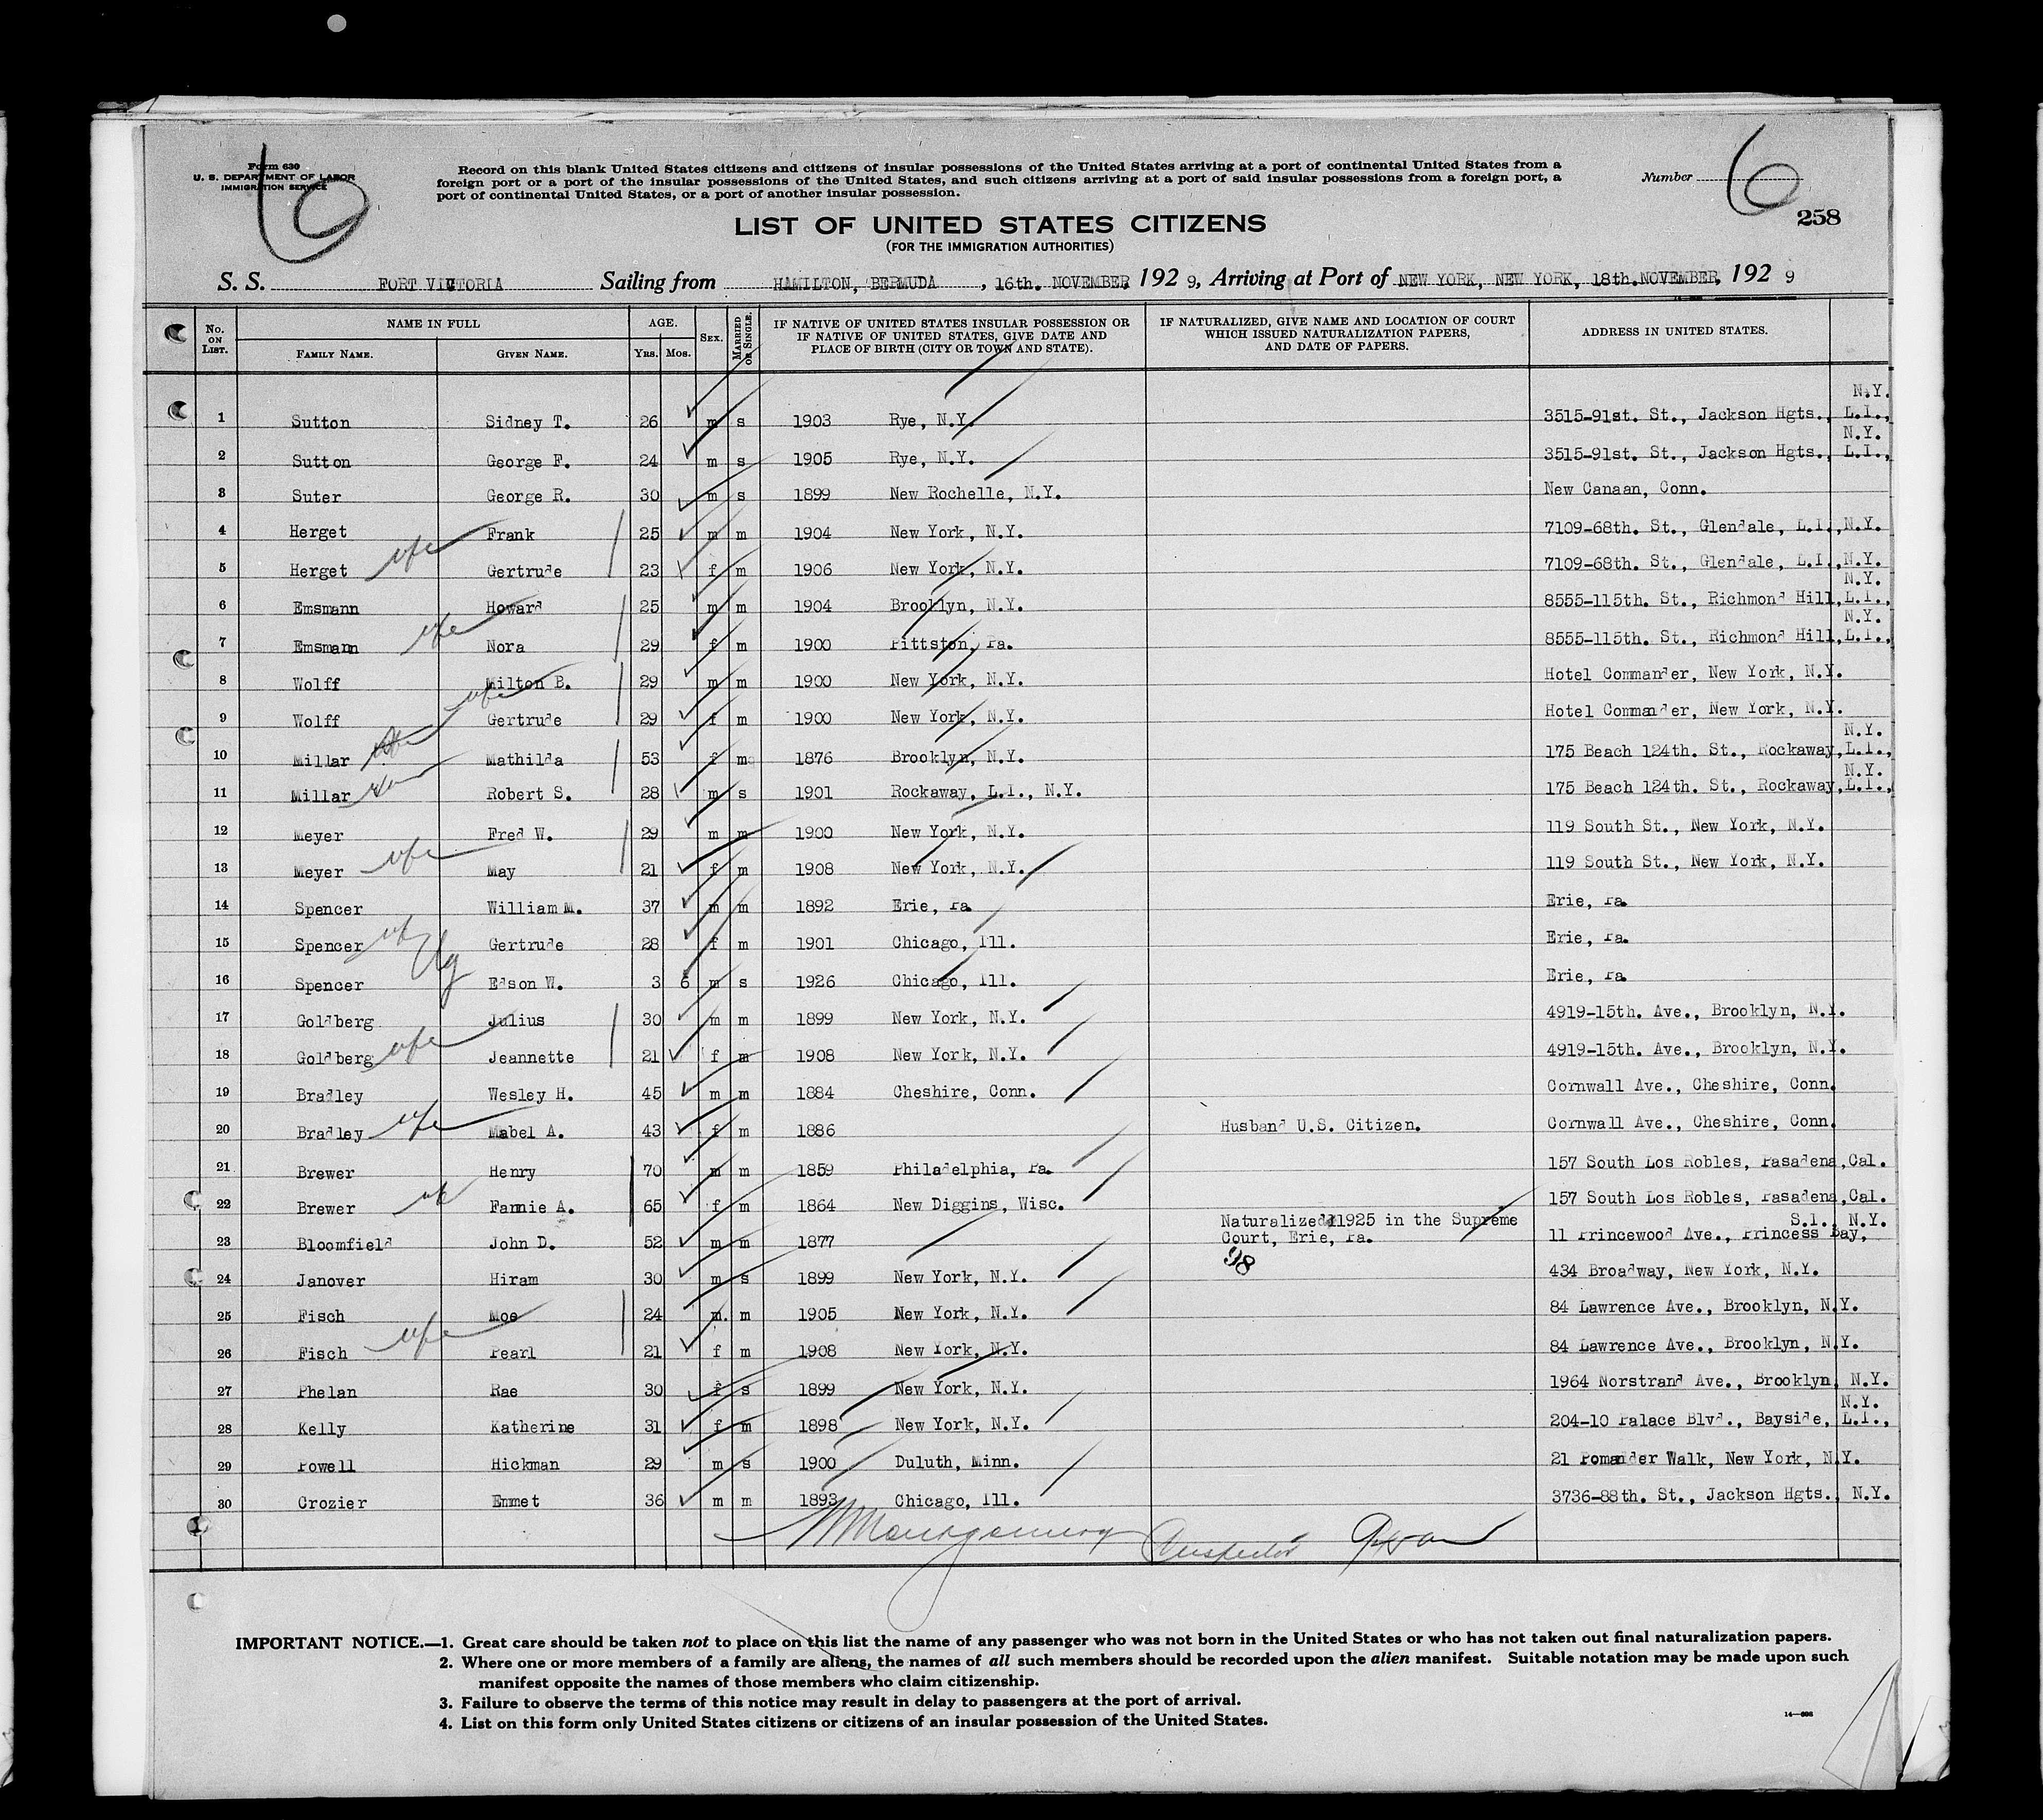 6
Form 630
U. S. DEPARTMENT OF LABOR
IMMIGRATION SERVICE
Record on this blank United States citizens and citizens of insular possessions of the United States arriving at a port of continental United States from a
foreign port or a port of the insular possessions of the United States, and such citizens arriving at a port of said insular possessions from a foreign port, a
port of continental United States, or a port of another insular possession.
Number 6
258
LIST OF UNITED STATES CITIZENS
(FOR THE IMMIGRATION AUTHORITIES)
S. S. FORT VICTORIA Sailing from HAMILTON, BERMUDA, 16th. NOVEMBER, 1929, Arriving at Port of NEW YORK, NEW YORK, 18th. NOVEMBER, 1929
No. ON LIST. NAME IN FULL FAMILY NAME. GIVEN NAME. AGE. YRS. MOS. SEX. MARRIED OR SINGLE. IF NATIVE OF UNITED STATES INSULAR POSSESSION OR IF NATIVE OF UNITED STATES, GIVE DATE AND PLACE OF BIRTH (CITY OR TOWN AND STATE). IF NATURALIZED, GIVE NAME AND LOCATION OF COURT WHICH ISSUED NATURALIZATION PAPERS, AND DATE OF PAPERS. ADDRESS IN UNITED STATES.
1 Sutton Sidney T. 26 m s 1903 Rye, N.Y. 3515-91st. St., Jackson Hgts., L.I., N.Y.
2 Sutton George F. 24 m s 1905 Rye, N.Y. 3515-91st. St., Jackson Hgts., L.I., N.Y.
3 Suter George R. 30 m s 1899 New Rochelle, N.Y. New Canaan, Conn.
4 Herget Frank 25 m m 1904 New York, N.Y. 7109-68th. St., Glendale, L.I., N.Y.
5 Herget wife Gertrude 23 f m 1906 New York, N.Y. 7109-68th. St., Glendale, L.I., N.Y.
6 Emsmann Howard 25 m m 1904 Brooklyn, N.Y. 8555-115th. St., Richmond Hill, L.I., N.Y.
7 Emsmann wife Nora 29 f m 1900 Pittston, Pa. 8555-115th. St., Richmond Hill, L.I., N.Y.
8 Wolff Milton B. 29 m m 1900 New York, N.Y. Hotel Commander, New York, N.Y.
9 Wolff wife Gertrude 29 f m 1900 New York, N.Y. Hotel Commander, New York, N.Y.
10 Millar Mathilda 53 f m 1876 Brooklyn, N.Y. 175 Beach 124th. St., Rockaway, L.I., N.Y.
11 Millar son Robert S. 28 m s 1901 Rockaway, L.I., N.Y. 175 Beach 124th. St., Rockaway, L.I., N.Y.
12 Meyer Fred W. 29 m m 1900 New York, N.Y. 119 South St., New York, N.Y.
13 Meyer wife May 21 f m 1908 New York, N.Y. 119 South St., New York, N.Y.
14 Spencer William M. 37 m m 1892 Erie, Pa. Erie, Pa.
15 Spencer wf Gertrude 28 f m 1901 Chicago, Ill. Erie, Pa.
16 Spencer Edson W. 3 6 m s 1926 Chicago, Ill. Erie, Pa.
17 Goldberg Julius 30 m m 1899 New York, N.Y. 4919-15th. Ave., Brooklyn, N.Y.
18 Goldberg wife Jeannette 21 f m 1908 New York, N.Y. 4919-15th. Ave., Brooklyn, N.Y.
19 Bradley Wesley H. 45 m m 1884 Cheshire, Conn. Cornwall Ave., Cheshire, Conn.
20 Bradley wife Mabel A. 43 f m 1886 Husband U.S. Citizen. Cornwall Ave., Cheshire, Conn.
21 Brewer Henry 70 m m 1859 Philadelphia, Pa. 157 South Los Robles, Pasadena, Cal.
22 Brewer wf Fannie A. 65 f m 1864 New Diggins, Wisc. 157 South Los Robles, Pasadena, Cal.
23 Bloomfield John D. 52 m m 1877 Naturalized 1925 in the Supreme Court, Erie, Pa. 11 Princewood Ave., Princess Bay, S.I., N.Y.
98
24 Janover Hiram 30 m s 1899 New York, N.Y. 434 Broadway, New York, N.Y.
25 Fisch Moe 24 m. m 1905 New York, N.Y. 84 Lawrence Ave., Brooklyn, N.Y.
26 Fisch wife Pearl 21 f m 1908 New York, N.Y. 84 Lawrence Ave., Brooklyn, N.Y.
27 Phelan Rae 30 f s 1899 New York, N.Y. 1964 Norstrand Ave., Brooklyn, N.Y.
28 Kelly Katherine 31 f m 1898 New York, N.Y. 204-10 Palace Blvd., Bayside, L.I., N.Y.
29 Powell Hickman 29 m s 1900 Duluth, Minn. 21 Pomander Walk, New York, N.Y.
30 Crozier Emmet 36 m m 1893 Chicago, Ill. 3736-88th. St., Jackson Hgts., N.Y.
Montgomery Inspector
IMPORTANT NOTICE.—1. Great care should be taken not to place on this list the name of any passenger who was not born in the United States or who has not taken out final naturalization papers.
2. Where one or more members of a family are aliens, the names of all such members should be recorded upon the alien manifest. Suitable notation may be made upon such
manifest opposite the names of those members who claim citizenship.
3. Failure to observe the terms of this notice may result in delay to passengers at the port of arrival.
4. List on this form only United States citizens or citizens of an insular possession of the United States.